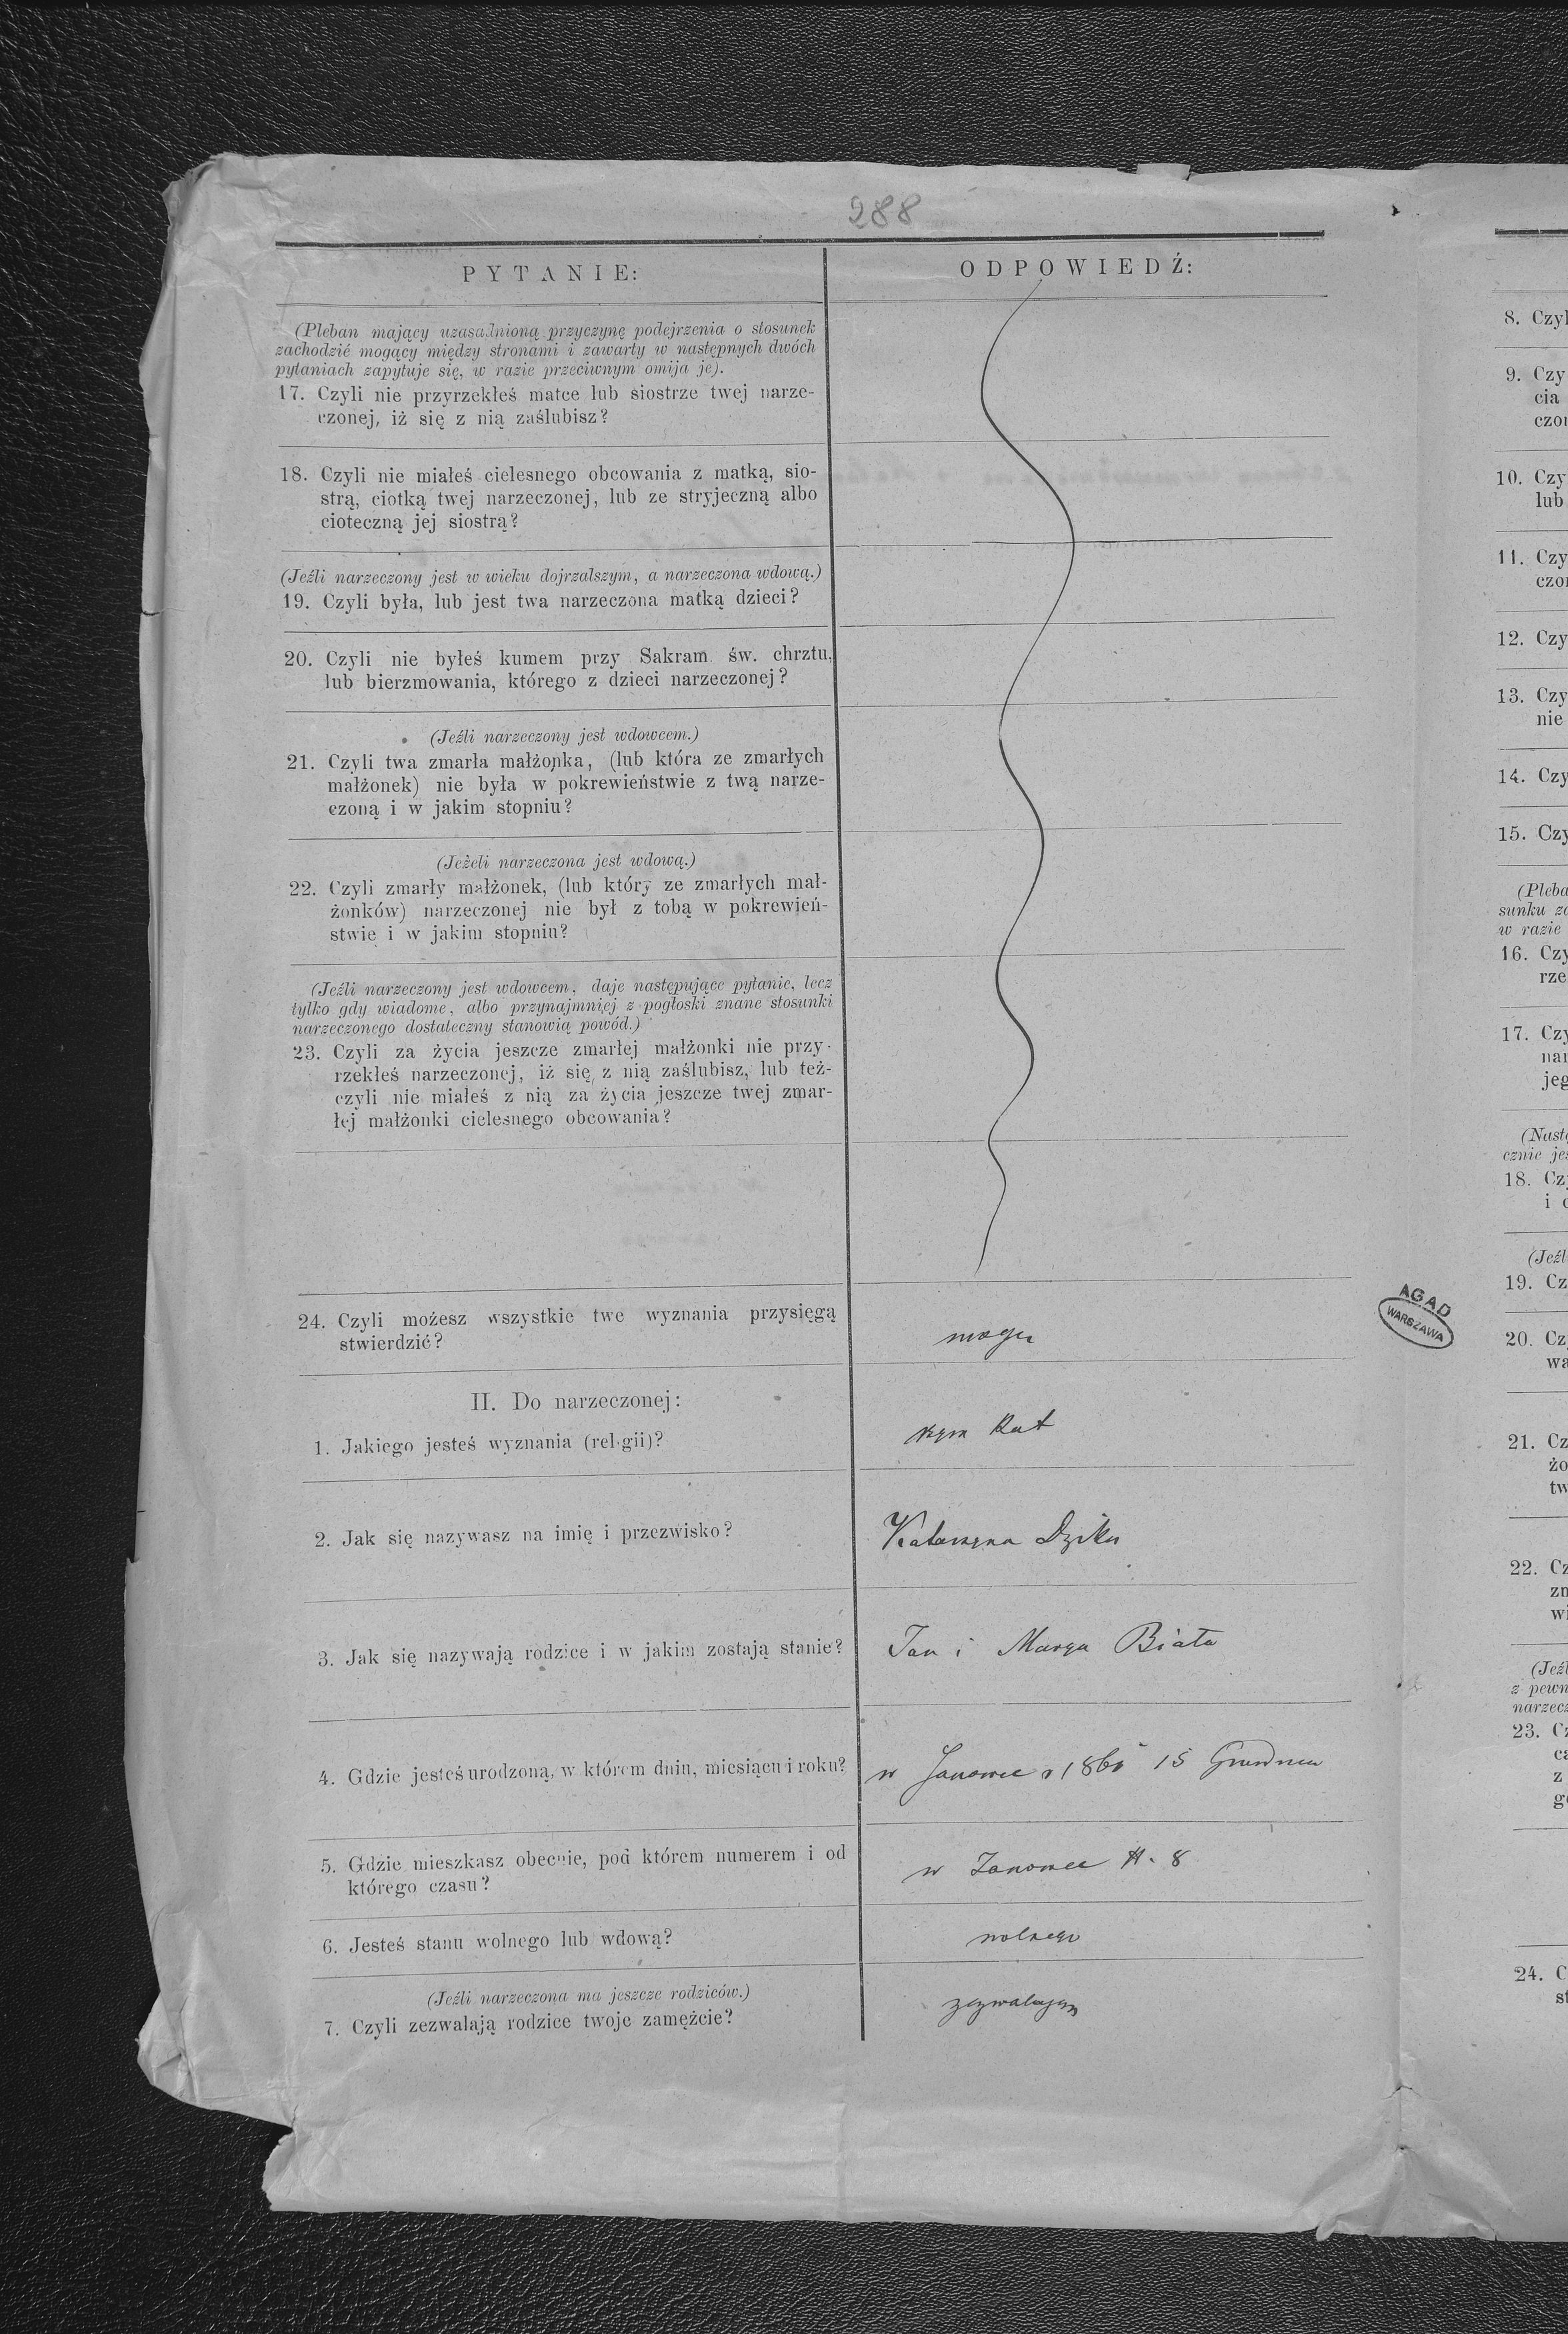 288
PYTANIE:
ODPOWIEDŹ:
(Pleban mający uzasadnioną przyczynę podejrzenia o stosunek
zachodzić mogący między stronami i zawarty w następnych dwóch
pytaniach zapytuje się, w razie przeciwnym omija je).
17. Czyli nie przyrzekłeś matce lub siostrze twej narze-
czonej, iż się z nią zaślubisz?
18. Czyli nie miałeś cielesnego obcowania z matką, sio-
strą, ciotką twej narzeczonej, lub ze stryjeczną albo
cioteczną jej siostrą?
(Jeźli narzeczony jest w wieku dojrzalszym, a narzeczona wdową.)
19. Czyli była, lub jest twa narzeczona matką dzieci?
20. Czyli nie byłeś kumem przy Sakram. św. chrztu,
lub bierzmowania, którego z dzieci narzeczonej?
(Jeźli narzeczony jest wdowcem.)
21. Czyli twa zmarła małżonka, (lub która ze zmarłych
małżonek) nie była w pokrewieństwie z twą narze-
czoną i w jakim stopniu?
(Jeżeli narzeczona jest wdową.)
22. Czyli zmarły małżonek, (lub który ze zmarłych mał-
żonków) narzeczonej nie był z tobą w pokrewień-
stwie i w jakim stopniu?
(Jeźli narzeczony jest wdowcem, daje następujące pytanie, lecz
tylko gdy wiadome, albo przynajmniej z pogłoski znane stosunki
narzeczonego dostateczny stanowią powód.)
23. Czyli za życia jeszcze zmarłej małżonki nie przy-
rzekłeś narzeczonej, iż się z nią zaślubisz, lub też
czyli nie miałeś z nią za życia jeszcze twej zmar-
łej małżonki cielesnego obcowania?
24. Czyli możesz wszystkie twe wyznania przysięgą
stwierdzić?
mogę
II. Do narzeczonej:
1. Jakiego jesteś wyznania (religii)?
rzym Kat
2. Jak się nazywasz na imię i przezwisko?
Katarzyna Dzika
3. Jak się nazywają rodzice i w jakim zostają stanie?
Jan i Marya Biała
4. Gdzie jesteś urodzoną, w którem dniu, miesiącu i roku?
w Janowce 15 Grudnia
5. Gdzie mieszkasz obecnie, pod którem numerem i od
którego czasu?
w Janowce N. 8
6. Jesteś stanu wolnego lub wdową?
wolnego
(Jeźli narzeczona ma jeszcze rodziców.)
7. Czyli zezwalają rodzice twoje zamężcie?
zezwalają
AGAD
WARSZAWA
8. Czyl
9. Czy
cia
czon
10. Czy
lub
11. Czy
czon
12. Czy
13. Czy
nie
14. Czy
15. Czy
(Pleba
sunku za
w razie
16. Czy
rze
17. Czy
nar
jeg
(Nastę
cznie jes
18. Czy
i c
(Jeźl
19. Cz
20. Cz
wa
21. Cz
żo
tw
22. Cz
zm
wi
(Jeźl
z pewn
narzecz
23. Cz
ca
z
go
24. C
st